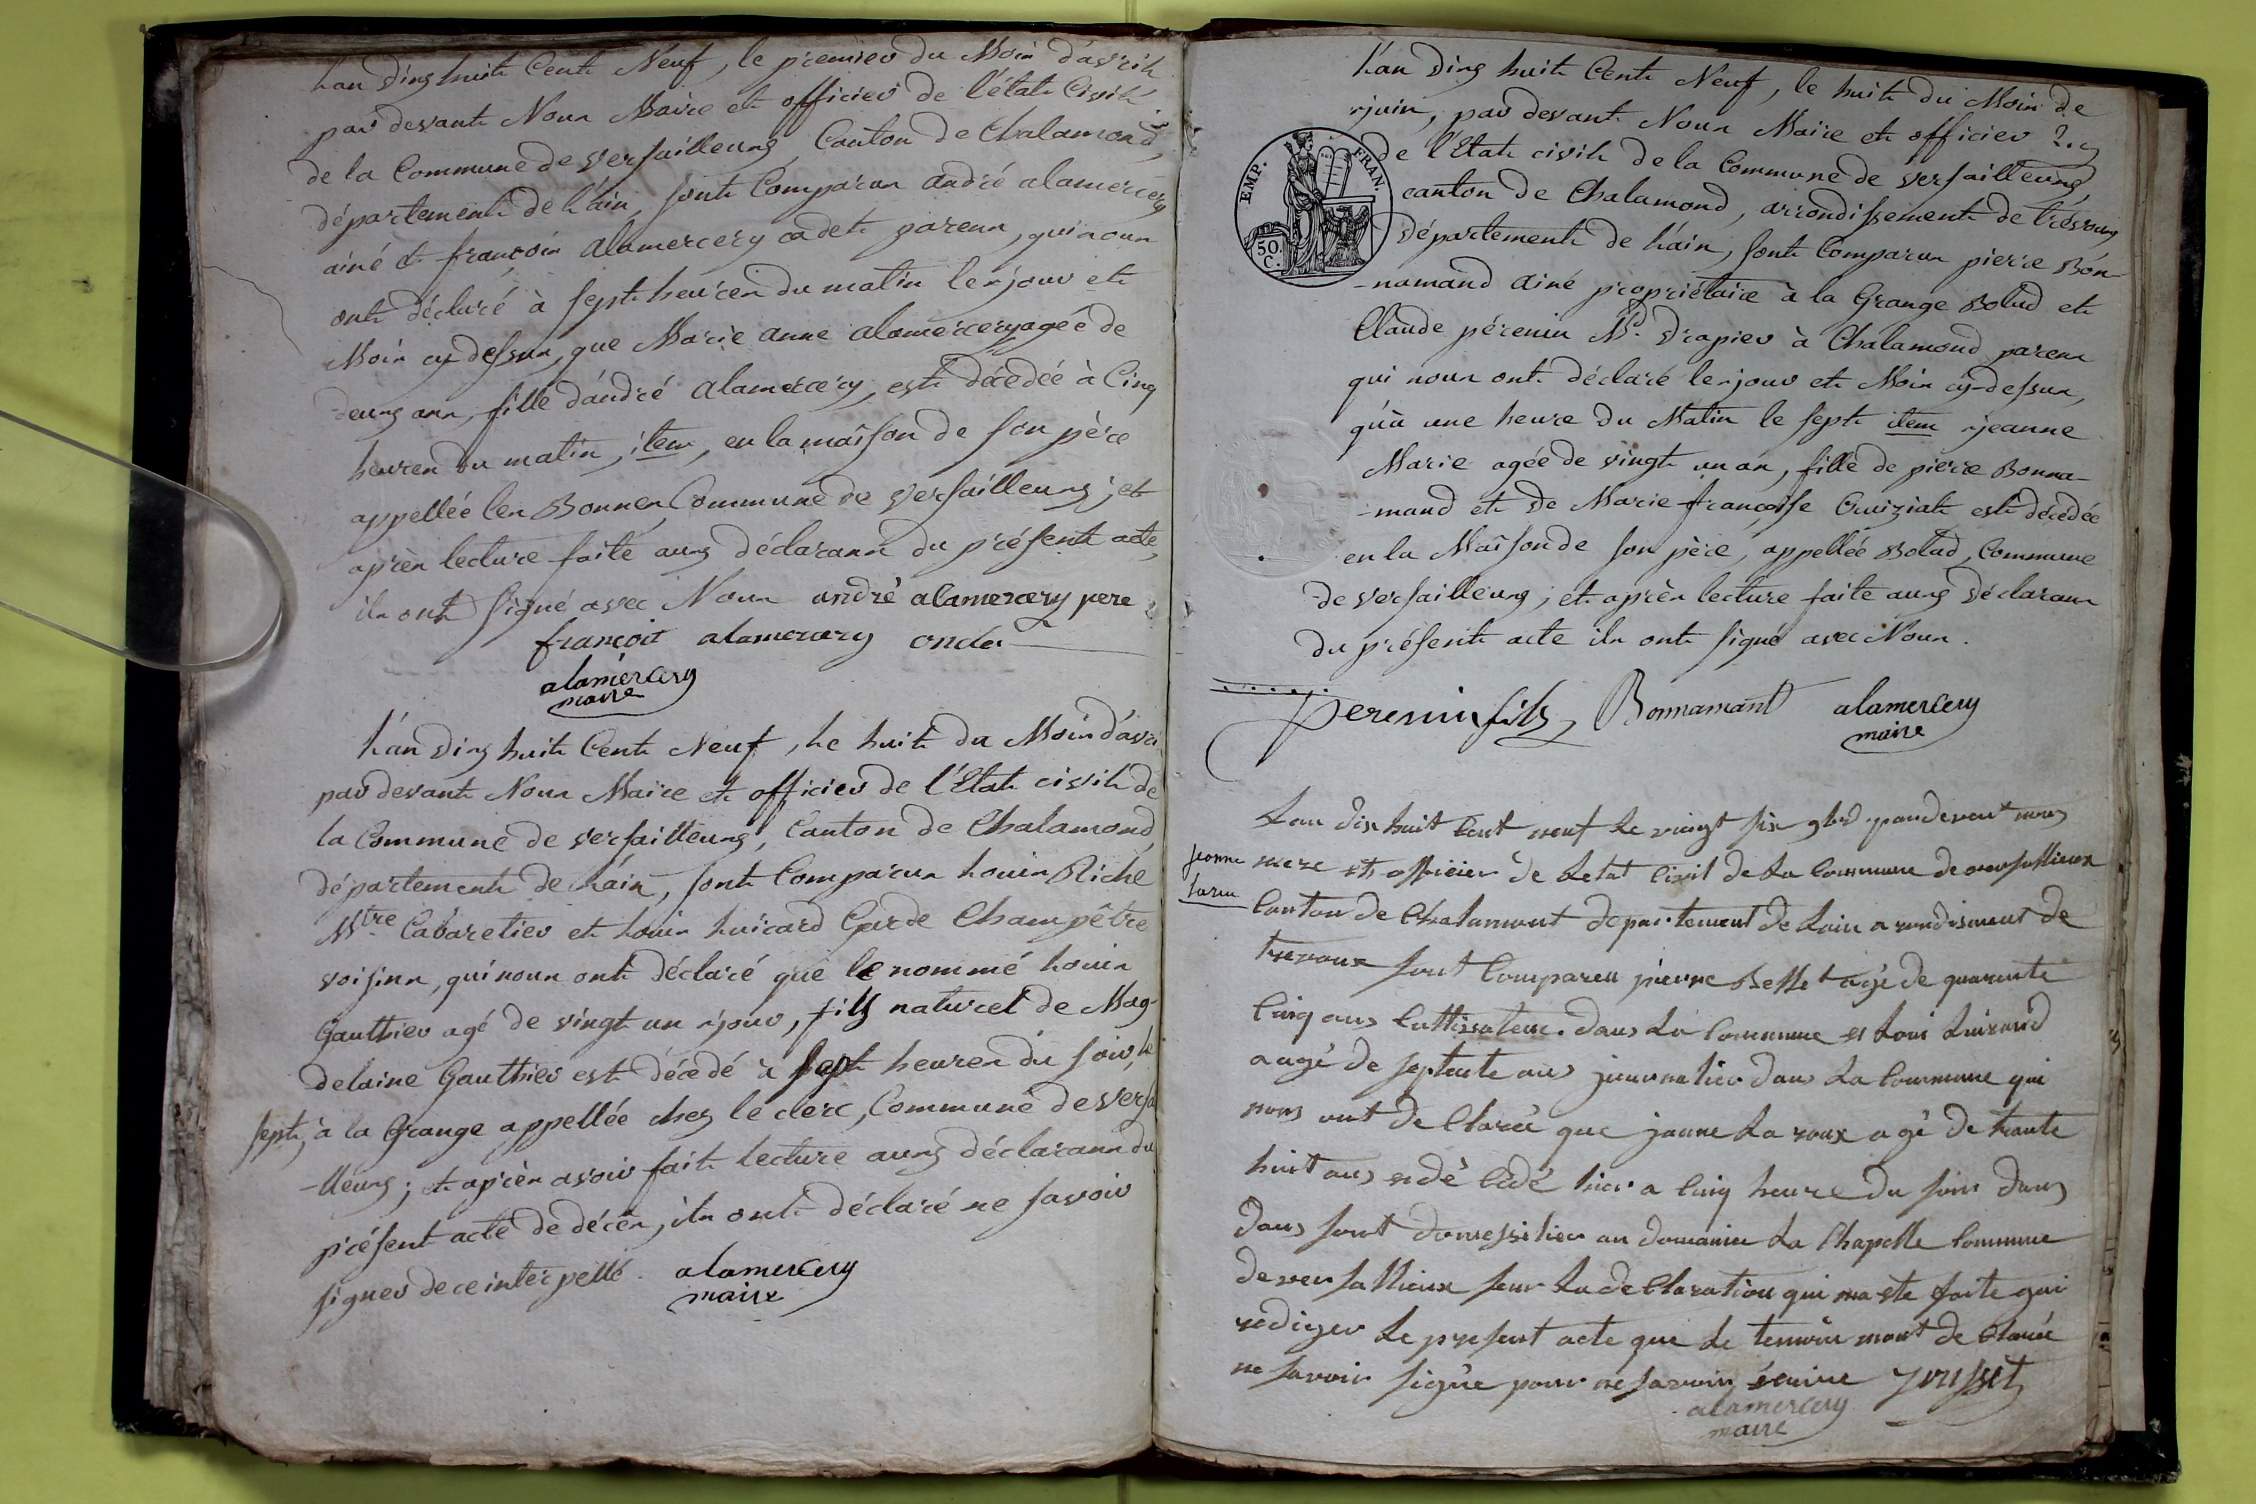 L'an dixhuit Cent Neuf, le premier du Mois d'avril
par devant Nous Maire et officier de l'état Civil
de la Commune de Versailleux Canton de Chalamond,
département de l'ain, sont Comparus andré alamercery
ainé et françois alamercery cadet parens, qui nous
ont déclaré à sept heures du matin les jour et
Mois cy dessus, que Marie anne alamercery agée de
deux ans, fille d'andré alamercery, est décédée à Cinq
heures du matin, item, en la maison de son père
appellée les Bonnes Commune de Versailleux; et
après lecture faite aux déclarans du présent acte,
ils ont signé avec Nous andrè alamercery pere
françoit alamercery oncle
alamercery
maire
L'an dix huit Cent Neuf, le huit du Mois d'avri
par devant Nous Maire et officier de l'Etat civil de
la Commune de versailleux, Canton de Chalamond,
département de l'ain, sont Comparus Louis Riche
Mtre Cabaretier et Louis Luicard Garde Champêtre
voisins, qui nous ont déclaré que le nommé Louis
Gauthier agé de vingt un jour, fils naturel de Mag-
delaine Gauthier est décédé à sept heures du soir, le
sept, à la Grange appellée chez le clerc, Commune de Versa
-lleux; et après avoir fait lecture aux déclarans du
présent acte de décès, ils ont déclaré ne savoir
signer de ce interpellé. alamercery
maire
L'an dix huit Cent Neuf, le huit du Mois de
juin, par devant Nous Maire et officier
de l'Etat civil de la Commune de versailleux
canton de Chalamond, arrondissement de trévoux
Département de l'ain, sont Comparus pierre Bon-
-namand ainé propriétaire à la Grange Bolud et
Claude pérenin Md. Drapier à Chalamond parens
qui nous ont déclaré les jour et Mois cy-dessus,
qu'à une heure du Matin le sept item jeanne
Marie agée de vingt un an, fille de pierre Bonna-
-mand et de Marie françoise Cruiziat est décédée
en la Maison de son père, appellée Bolud, Commune
de versailleux; et après lecture faite aux Déclarans
du présent acte ils ont signé avec Nous.
EMP. FRAN.
50. C.
perenin fils Bonnamant alamercery
maire
Jeanne
Larou
Lan dix huit Cent neuf Le vingt six 9bre pardevant nous
mere et officier de Letat Civil de La Commune de versallieux
Canton de Chalamont departement de Lain a rondisment de
trevoux sont Comparu pierre Bellet agé de quarante
Cinq ans Cultivateur dans La Commune et Loui Luicard
aagé de septente ans journalier dans La Commune qui
nous ont de Claree que janne La roux agé de trante
huit ans et dè Cédé hier a Cinq heure du soir dans
dans sont domessilier au domaine La Chapelle Commune
de versallieux seur La de Claration qui ma ete faite gai
rediger Le present acte que Le temoin mont de Claree
ne savoir signe pour ne savoir écrire
alamercery
maire